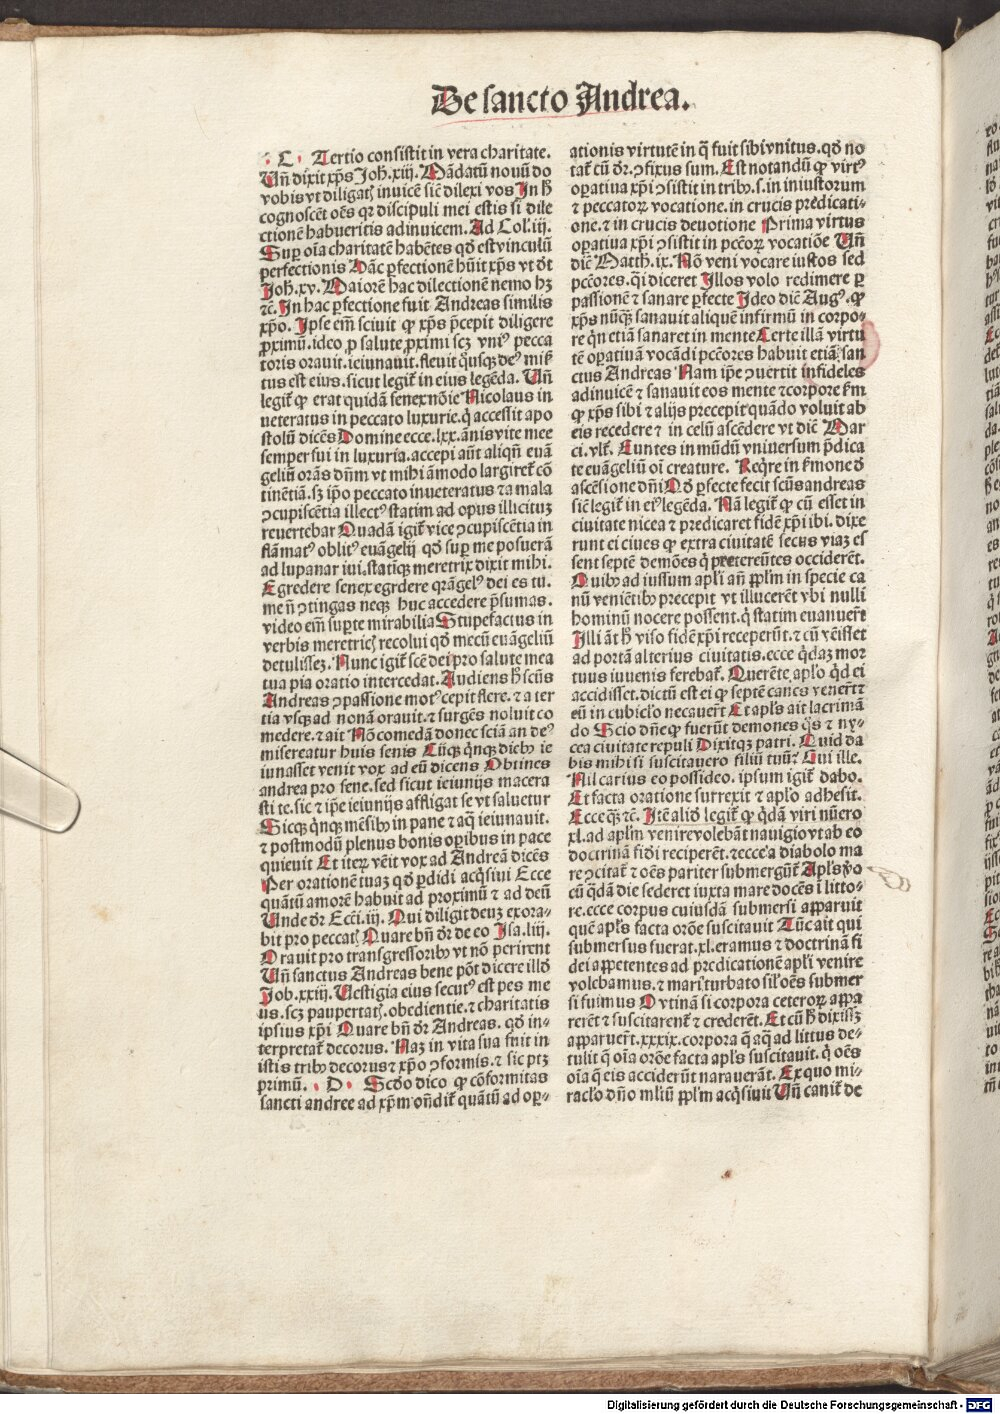 De sancto Andrea.
· C · Tertio consistit in vera charitate.
Vñ dixit xp̄s Joh̄. xiij. Mādatū nouū do
vobis vt diligatꝭ inuicē sic̄ dilexi vos Jn h̄
cognoscēt oēs qꝛ discipuli mei estis si dile
ctionē habueritis adinuicem. Ad Col. iij.
Suꝑ oīa charitatē habētes qḋ est vinculū
perfectionis Hāc ꝑfectionē hūit xp̄s vt dr̄
Joh̄. xv. Maiorē hac dilectionē nemo hꝫ
ꝛc̄. Jn hac ꝑfectione fuit Andreas similis
xp̄o. Jpse em̄ sciuit ꝙ xp̄s p̄cepit diligere
ꝓximū. ideo ꝓ salute ꝓximi scꝫ vniꝰ pecca
toris orauit. ieiunauit. fleuit q̊usqꝫ deꝰ miẜ
tus est eius. sicut legit̄ in eius legēda. Vñ
legit̄ ꝙ erat quidā senex nōie Nicolaus in
ueteratus in peccato luxurie. q̇ accessit apo
stolū dicēs Domine ecce. lxx. ānis vite mee
semper fui in luxuria. accepi aūt aliqñ euā
geliū orās dn̄m vt mihi āmodo largiret̄ cō
tinētiā. sꝫ ip̄o peccato inueteratus ⁊ a mala
ꝯcupiscētia illectꝰ statim ad opus illicitūꝫ
reuertebar Quadā igit̄ vice ꝯcupiscētia in
flāmatꝰ oblitꝰ euāgelij qḋ suꝑ me posuerā
ad lupanar iui. statīqꝫ meretrix dixit mihi.
Egredere senex egrdere qꝛ āgelꝰ dei es tu.
me ñ ꝯtingas neqꝫ huc accedere p̄sumas.
video em̄ suꝑ te mirabilia Stupefactus in
verbis meretricꝭ recolui qḋ mecū euāgeliū
detulissez. Nunc igit̄ scē dei pro salute mea
tua pia oratio intercedat. Audiens h̄ scūs
Andreas ꝯpassione motꝰ cepit flere. ⁊ a ter
tia vsqꝫ ad nonā orauit. ⁊ surgēs noluit co
medere. ⁊ ait Nō comedā donec sciā an deꝰ
misereatur huis senis Cūqꝫ q̇nqꝫ diebꝫ ie
iunasset venit vox ad eū dicens Obtines
andrea pro sene. sed sicut ieiunijs macera
sti te. sic ⁊ ip̄e ieiunijs affligat se vt saluetur
Sicqꝫ q̇nqꝫ mēsibꝫ in pane ⁊ aq̄ ieiunauit.
⁊ postmodū plenus bonis oꝑibus in pace
quieuit Et iteꝝ vēit vox ad Andreā dicēs
Per orationē tuaꝫ qḋ ꝑdidi acq̇siui Ecce
quātū amorē habuit ad proximū ⁊ ad deū
Vnde dr̄ Ecci. iiij. Qui diligit deuꝫ exora-
bit pro peccatꝭ Quare bn̄ dr̄ de eo Jsa. liij.
Orauit pro transgressoribꝫ vt nō perirent
Vñ sanctus Andreas bene pōt dicere illḋ
Job. xxiij. Vestigia eius secutꝰ est pes me
us. scꝫ paupertatꝭ. obedientie. ⁊ charitatis
ipsius xp̄i Quare bn̄ dr̄ Andreas. qḋ in-
terpretat̄ decorus. Naꝫ in vita sua fuit in
istis tribꝫ decorus ⁊ xp̄o ꝯformis. ⁊ sic ptꝫ
primū. · D · Scḋo dico ꝙ cōformitas
sancti andree ad xp̄m oñdit̄ quātū ad oꝑ-
ationis virtutē in q̄ fuit sibi vnitus. qḋ no
tat̄ cū dr̄. ꝯfixus sum. Est notandū ꝙ virtꝰ
oꝑatiua xp̄i ꝯsistit in tribꝫ. s. in iniustorum
⁊ peccatoꝝ vocatione. in crucis predicati-
one. ⁊ in crucis deuotione Prima virtus
oꝑatiua xp̄i ꝯsistit in pctōꝝ vocatiōe Vñ
dic̄ Matth. ix. Nō veni vocare iustos sed
pctōres. q̇. diceret Jllos volo redimere ꝑ
passionē ⁊ sanare ꝑfecte Jdeo dic̄ Augꝰ. ꝙ
xp̄s nūc̄qꝫ sanauit aliquē infirmū in corpo-
re q̇n etiā sanaret in mente Certe illā virtu
tē oꝑatiuā vocādi pctōres habuit etiā san
ctus Andreas Nam ip̄e ꝯuertit infideles
adinuicē ⁊ sanauit eos mente ⁊ corpore ẜm
ꝙ xp̄s sibi ⁊ alijs precepit quādo voluit ab
eis recedere ⁊ in celū ascēdere vt dic̄ Mar
ci. vlt̄. Euntes in mūdū vniuersum p̄dica
te euāgeliū oī creature. Req̇re in ẜmone ḋ
ascēsione dn̄i Qḋ ꝑfecte fecit scūs andreas
sic̄ legit̄ in eiꝰ legēda. Nā legit̄ ꝙ cū esset in
ciuitate nicea ⁊ predicaret fidē xp̄i ibi. dixe
runt ei ciues ꝙ extra ciuitatē secus viaꝫ es
sent septē demōes q̇ pretereūtes occiderēt.
Quibꝫ ad iussum apl̄i añ ppl̄m in specie ca
nū veniētibꝫ precepit vt illucerēt vbi nulli
hominū nocere possent. q̇ statim euanuert̄
Jlli āt h̄ viso fidē xp̄i receperūt. ⁊ cū vēisset
ad portā alterius ciuitatis. ecce q̇daꝫ mor
tuus iuuenis ferebat̄. Querēte apl̄o q̇d ei
accidisset. dictū est ei ꝙ septē canes venert̄ ⁊
eū in cubicl̄o necauert̄ Et apl̄s ait lacrimā
do Scio dn̄e ꝙ fuerūt demones q̊s ⁊ ny-
cea ciuitate repuli Dixitqꝫ patri. Quid da
bis mihi si suscitauero filiū tuū? Cui ille.
Nil carius eo possideo. ipsum igit̄ dabo.
Et facta oratione surrexit ⁊ apl̄o adhesit.
Ecce q̊s ⁊c̄. Jtē aliḋ legit̄ ꝙ q̇dā viri nūero
xl. ad apl̄m venire volebāt nauigio vt ab eo
doctrinā fidei reciperēt. ⁊ ecce a diabolo ma
re ꝯcitat̄ ⁊ oēs pariter submergūt̄ Apl̄s ꝟo
cū q̇dā die sederet iuxta mare docēs ī litto-
re. ecce corpus cuiusdā submersi apparuit
quē apl̄s facta orōe suscitauit Tūc ait qui
submersus fuerat. xl. eramus ⁊ doctrinā fi
dei appetentes ad predicationē apl̄i venire
volebamus. ⁊ mari turbato sil̄ oēs submer
si fuimus O vtinā si corpora ceteroꝝ appa
rerēt ⁊ suscitarent̄ ⁊ crederēt. Et cū h̄ dixisꝫ
apparuert̄. xxxix. corpora q̄ aq̄ ad littus de-
tulit q̄ oīa orōe facta apl̄s suscitauit. q̇ oēs
oīa q̄ eis acciderūt narauerāt. Ex quo mi-
racl̄o dn̄o ml̄tū ppl̄m acq̇siuit Vñ canit̄ de
Digitalisierung gefördert durch die Deutsche Forschungsgemeinschaft - DFG